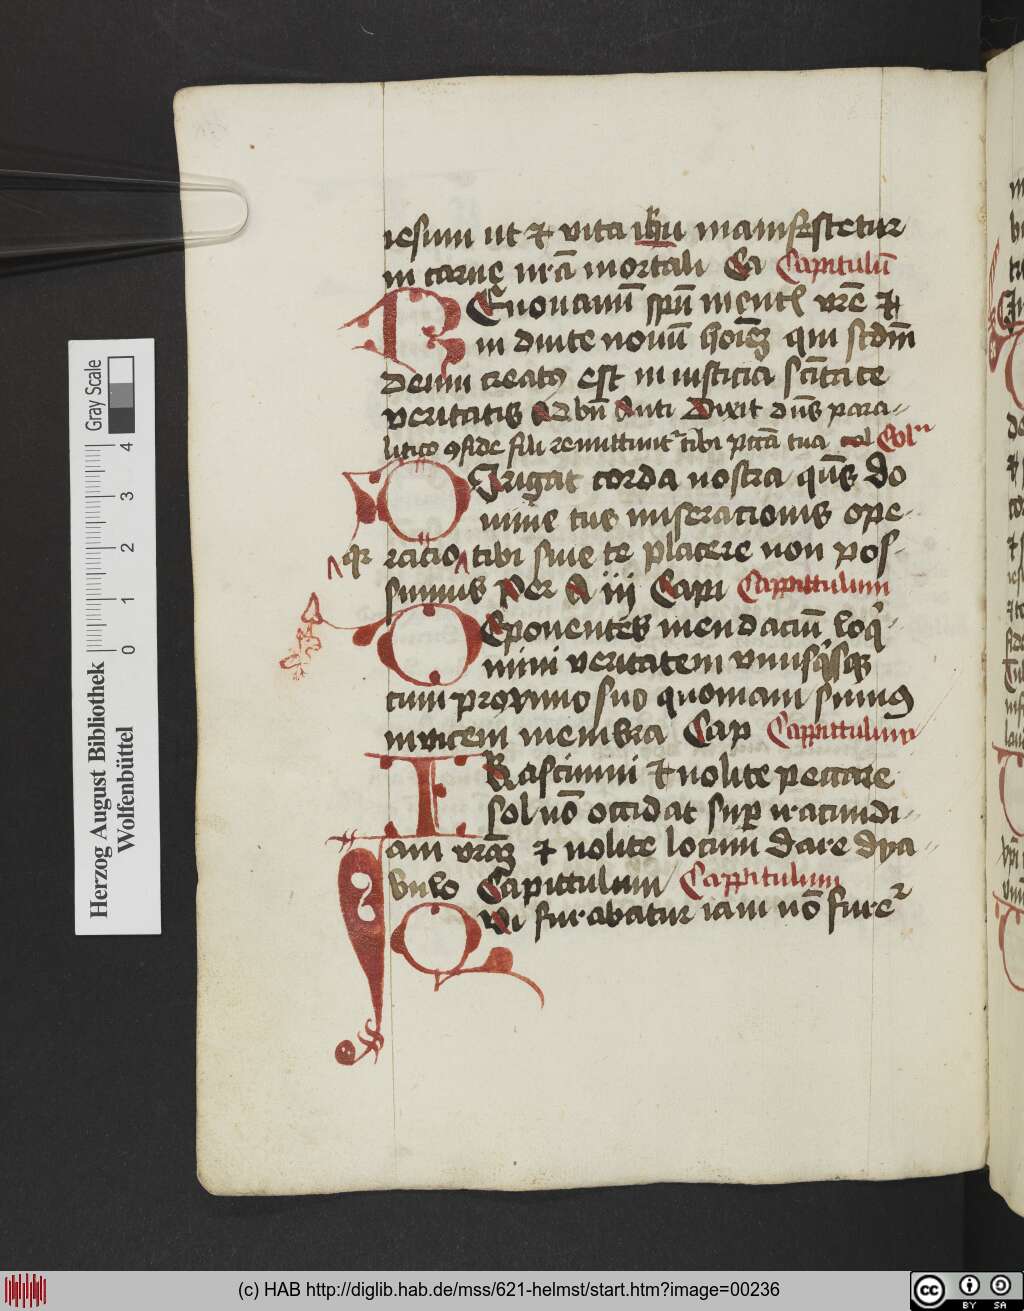 iesum ut et vita ihu manifestetur
in carne nrā mortali Ca Capitulū
REnouamī spū mentꝭ vrē et
in duite nouū hoīeꝫ qui scdm̄
deum creatꝰ est in iusticia scītate
veritatis Ad bn̄ Anti Dixit dn̄s para-
litico ꝯfide fili remittunt᷑ tibi pccā tua col Coll
DIrigat corda nostra qs̄ do
mine tue miseracionis ope-
racio tibi sine te placere non pos-
qr
sumus Per A iij Capi Cappittulum
DEponentes mendaciū loqi-
mini veritatem vnusqisqꝫ
cum proximo suo quoniam sumꝰ
invicem membra Cap Cappittulum
IRascimini et nolite peccare
sol nō occidat sup iracundi-
am vrāꝫ et nolite locum dare dya-
bulo Capittulum Cappitulum
QVi furabatur iam nō fure
Herzog August Bibliothek
Wolfenbüttel
Gray Scale
0 1 2 3 4
(c) HAB http://diglib.hab.de/mss/621-helmst/start.htm?image=00236
cc BY SA